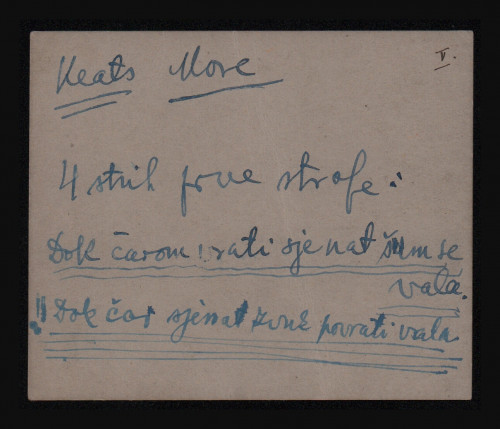 V.
Keats More
4 stih prve strofe:
Dok čarom vrati sjenat šum se
vala.
!! Dok čar sjenat zvuk povrati vala